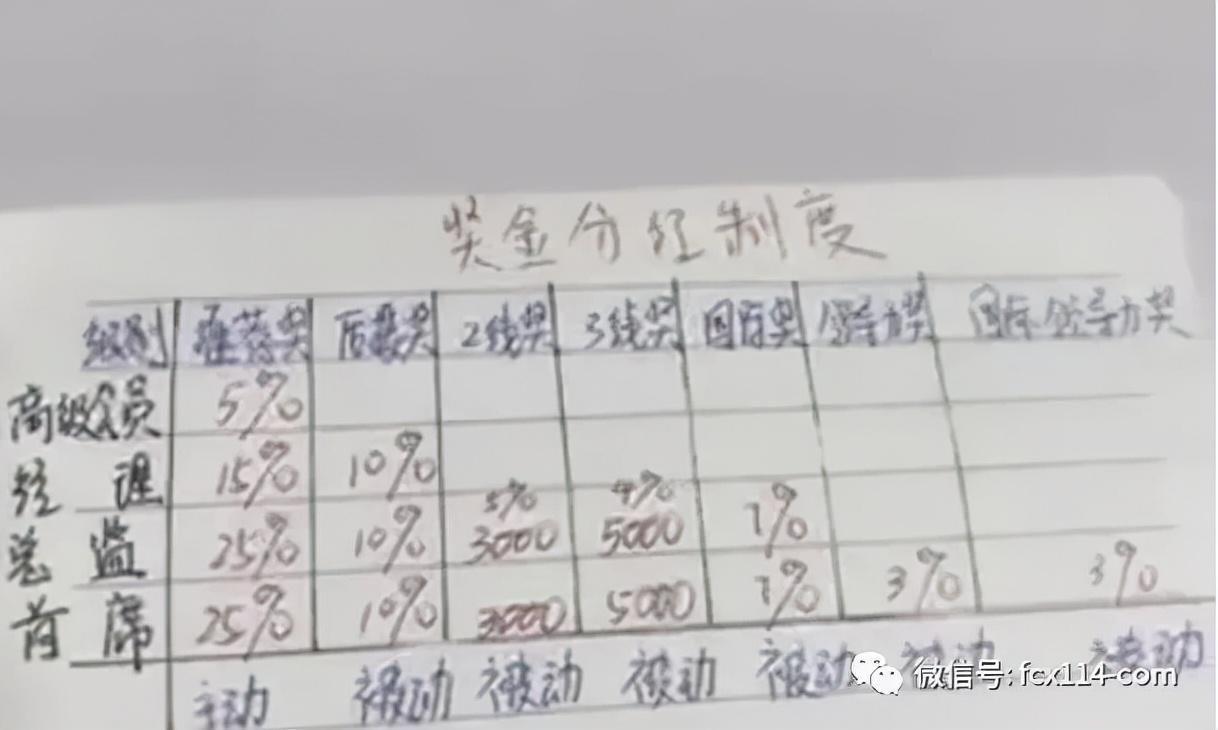 奖金分红制度
级别 推荐奖 后援奖 2线奖 3线奖 国际奖 领导力奖 国际领导力奖
高级会员 5%
经理 15% 10%
5% 4%
总监 25% 10% 3000 5000 1%
首席 25% 10% 3000 5000 1% 3% 3%
主动 被动 被动 被动 被动 被动 被动
微信号: fcx114-com